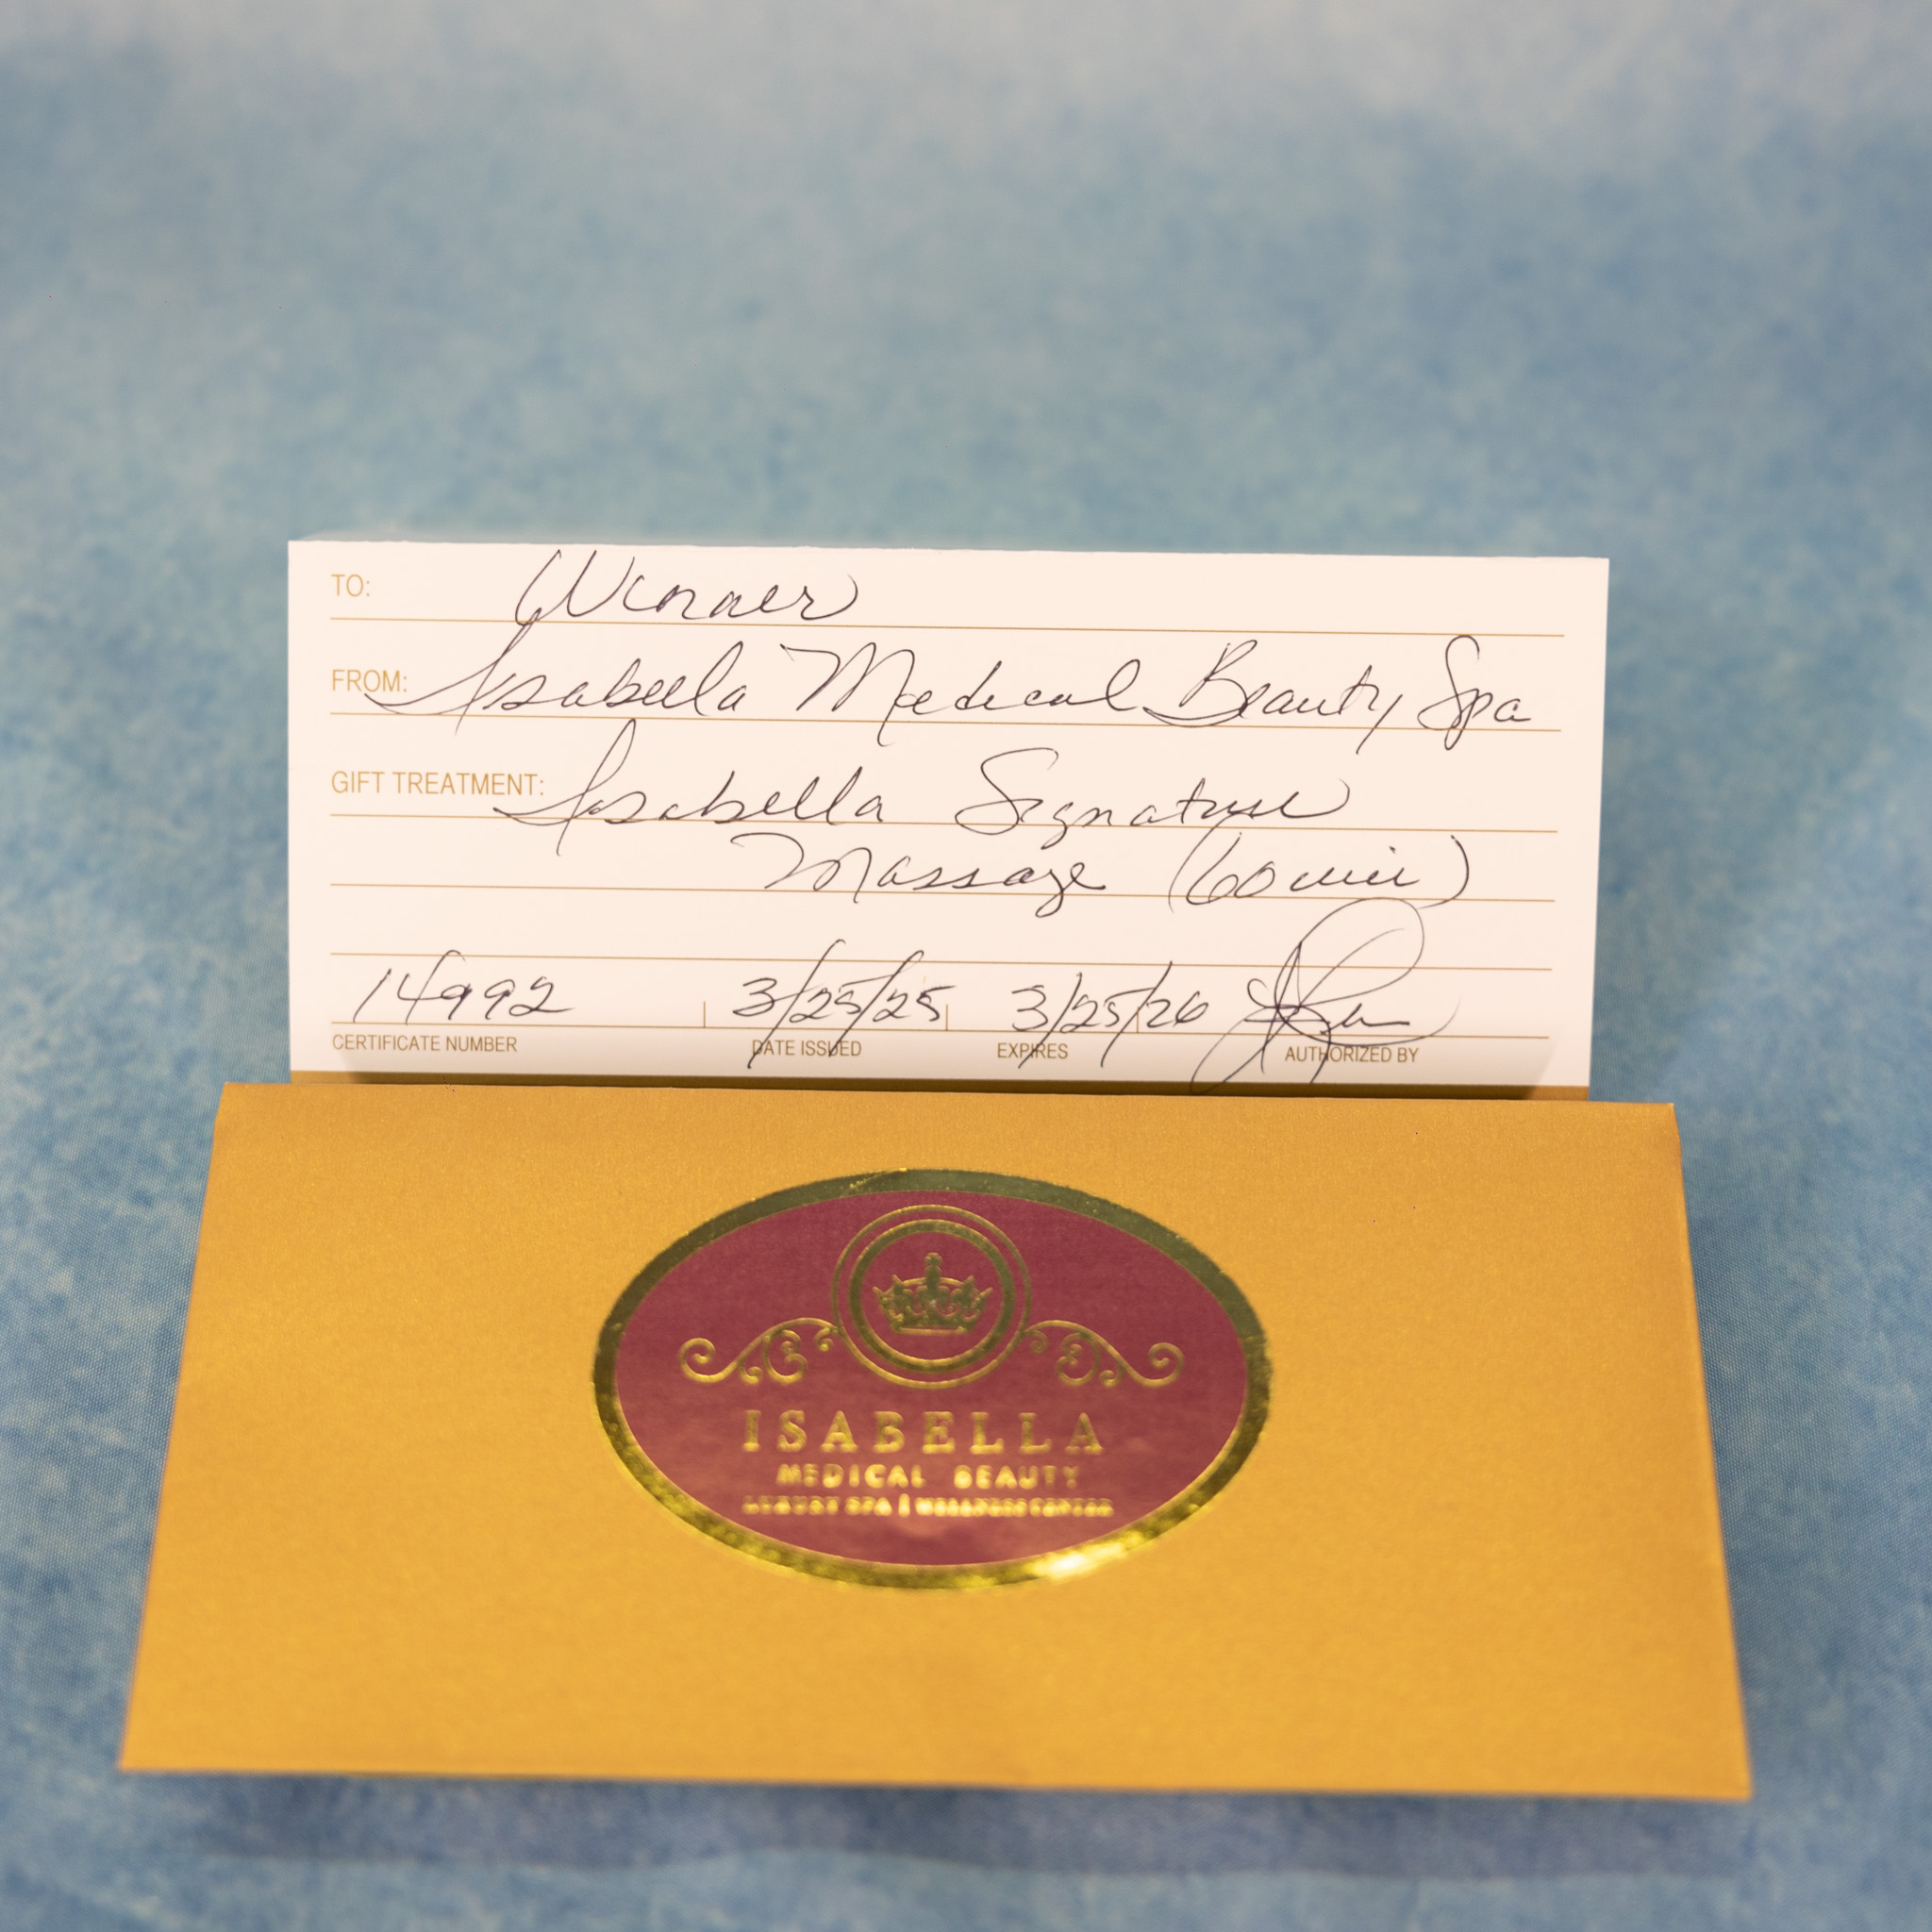 TO: Winner
FROM: Isabella Medical Beauty Spa
GIFT TREATMENT: Isabella Signature
Massage (60 min)
14992 3/25/25 3/25/26
CERTIFICATE NUMBER DATE ISSUED EXPIRES AUTHORIZED BY
ISABELLA
MEDICAL BEAUTY
LUXURY SPA | WELLNESS CENTER